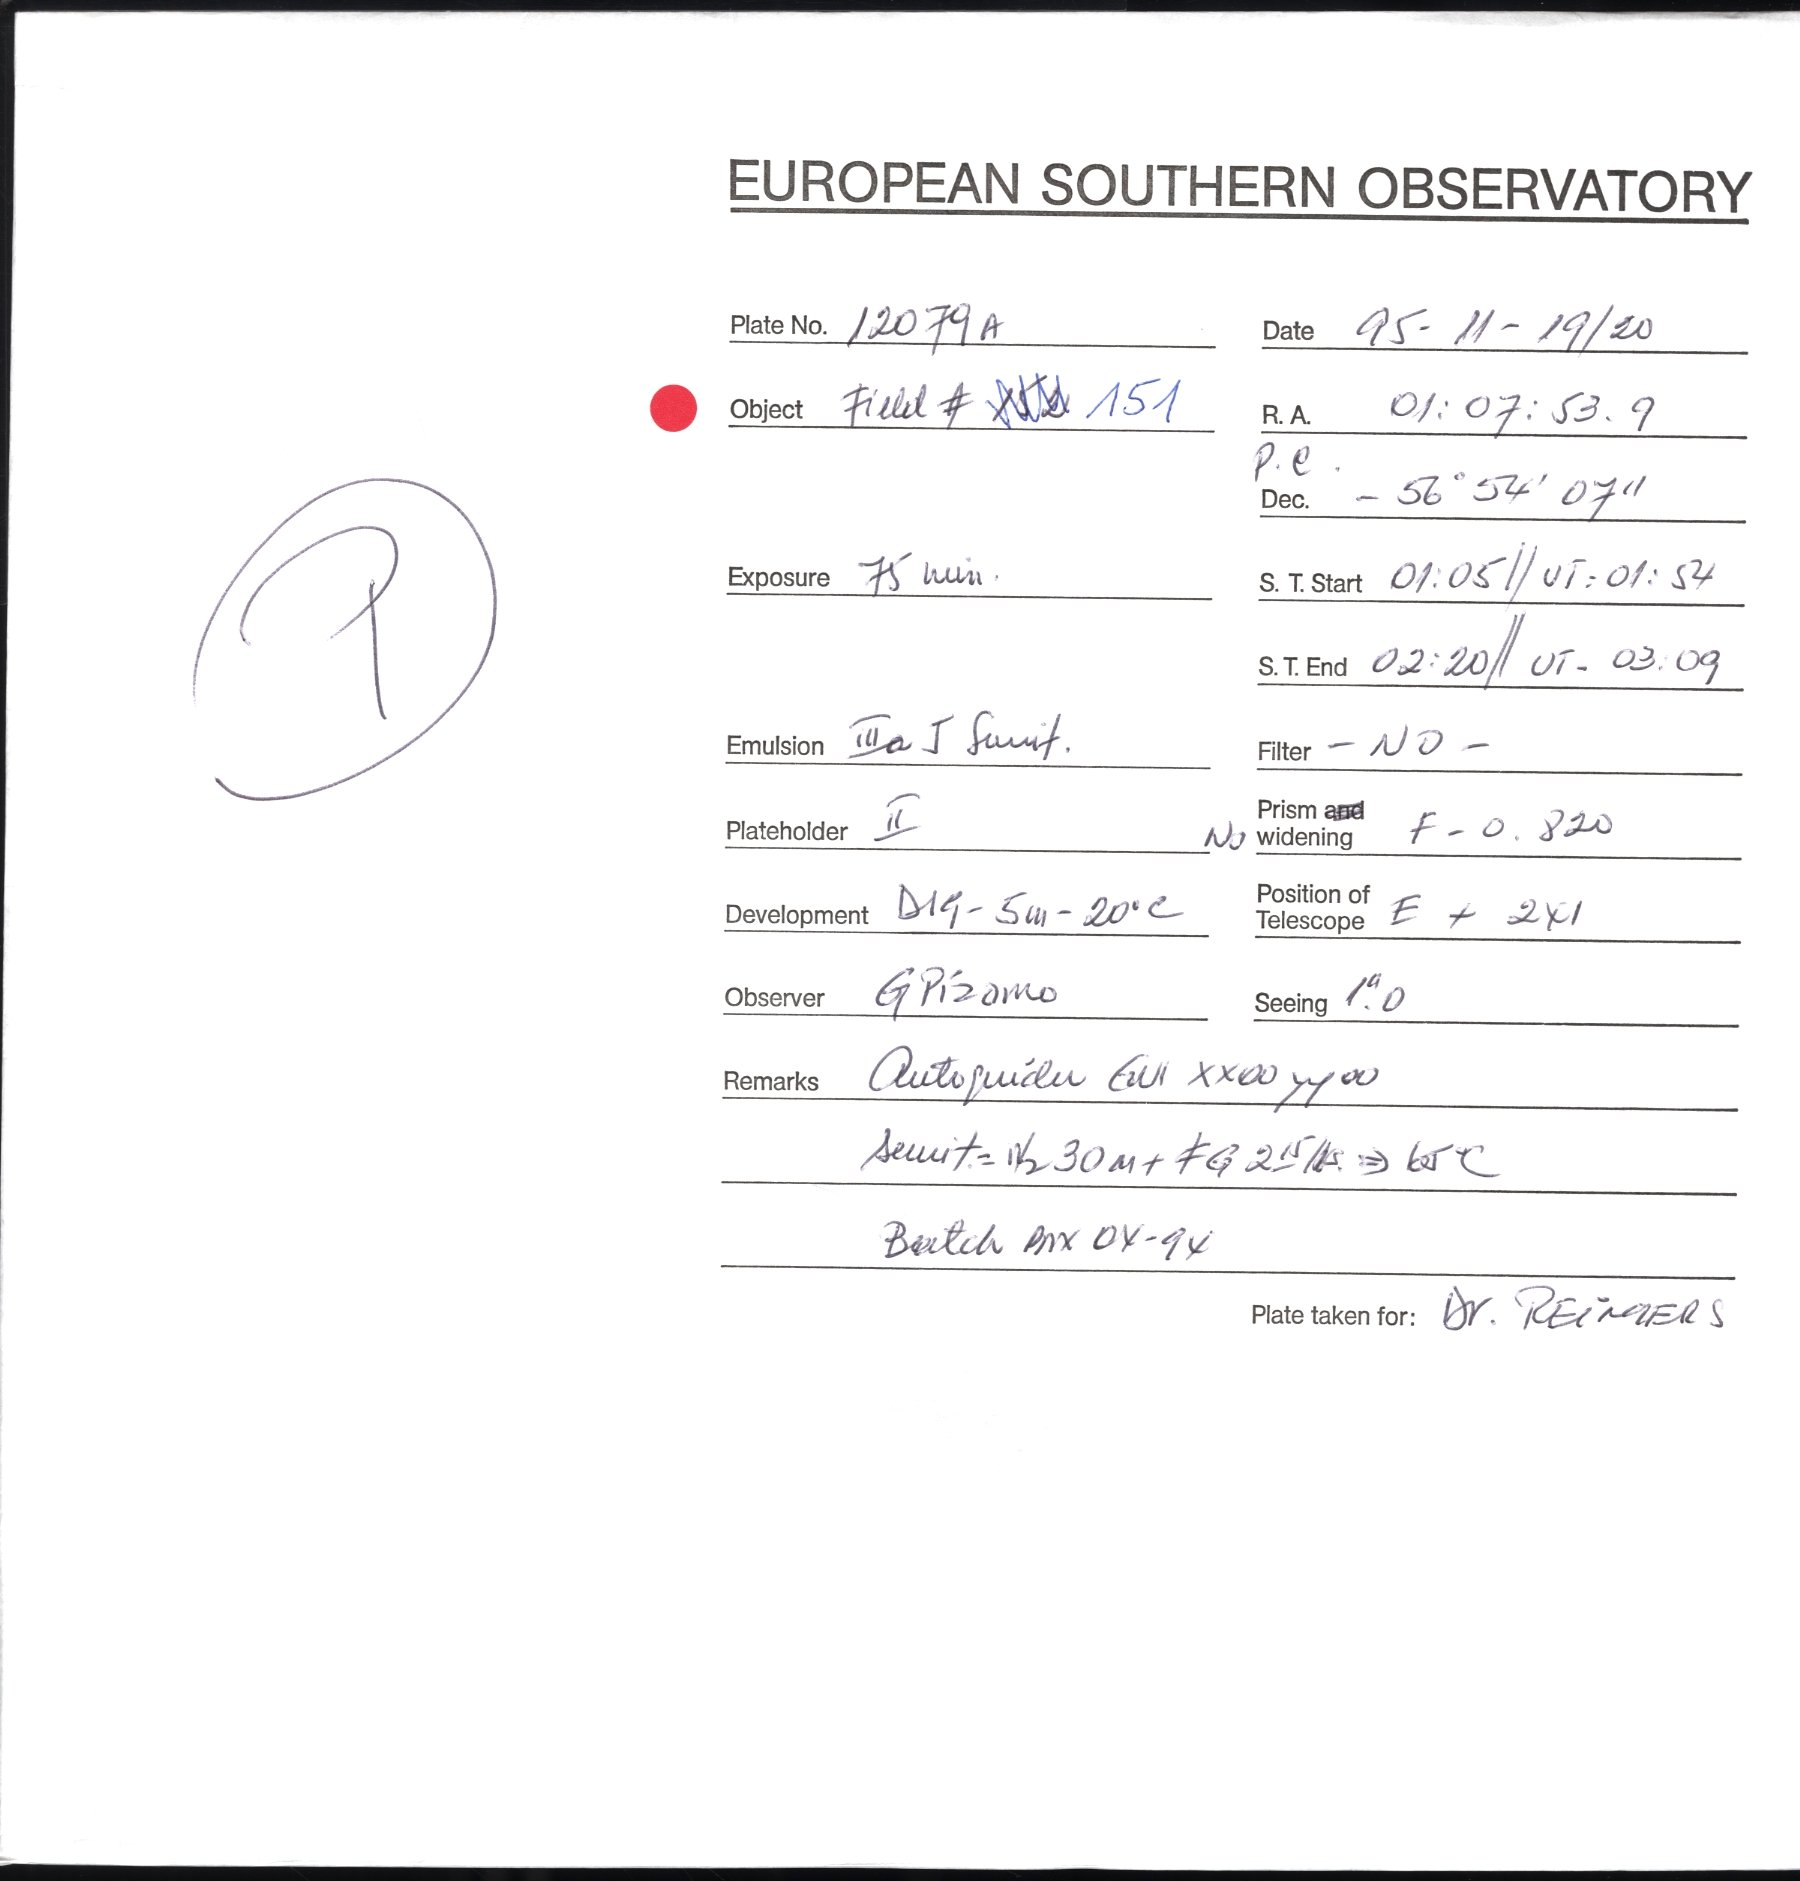 EUROPEAN SOUTHERN OBSERVATORY
Plate No. 12079A Date 95-11-19/20
Object Field # 151 R. A. 01:07:53.9
P.C.
Dec. -56° 54' 07"
Exposure 75 min. S. T. Start 01:05// UT: 01:54
S. T. End 02:20// UT- 03:09
Emulsion IIIaJ Filter - NO -
Plateholder II No Prism and widening F-0.820
Development D19-5m-20°C Position of Telescope E + 2x1
Observer G Pizarro Seeing 1".0
Remarks Autoguider xx00 yy00
30m+ FG 65°C
Batch
Plate taken for: Dr. REIMERS